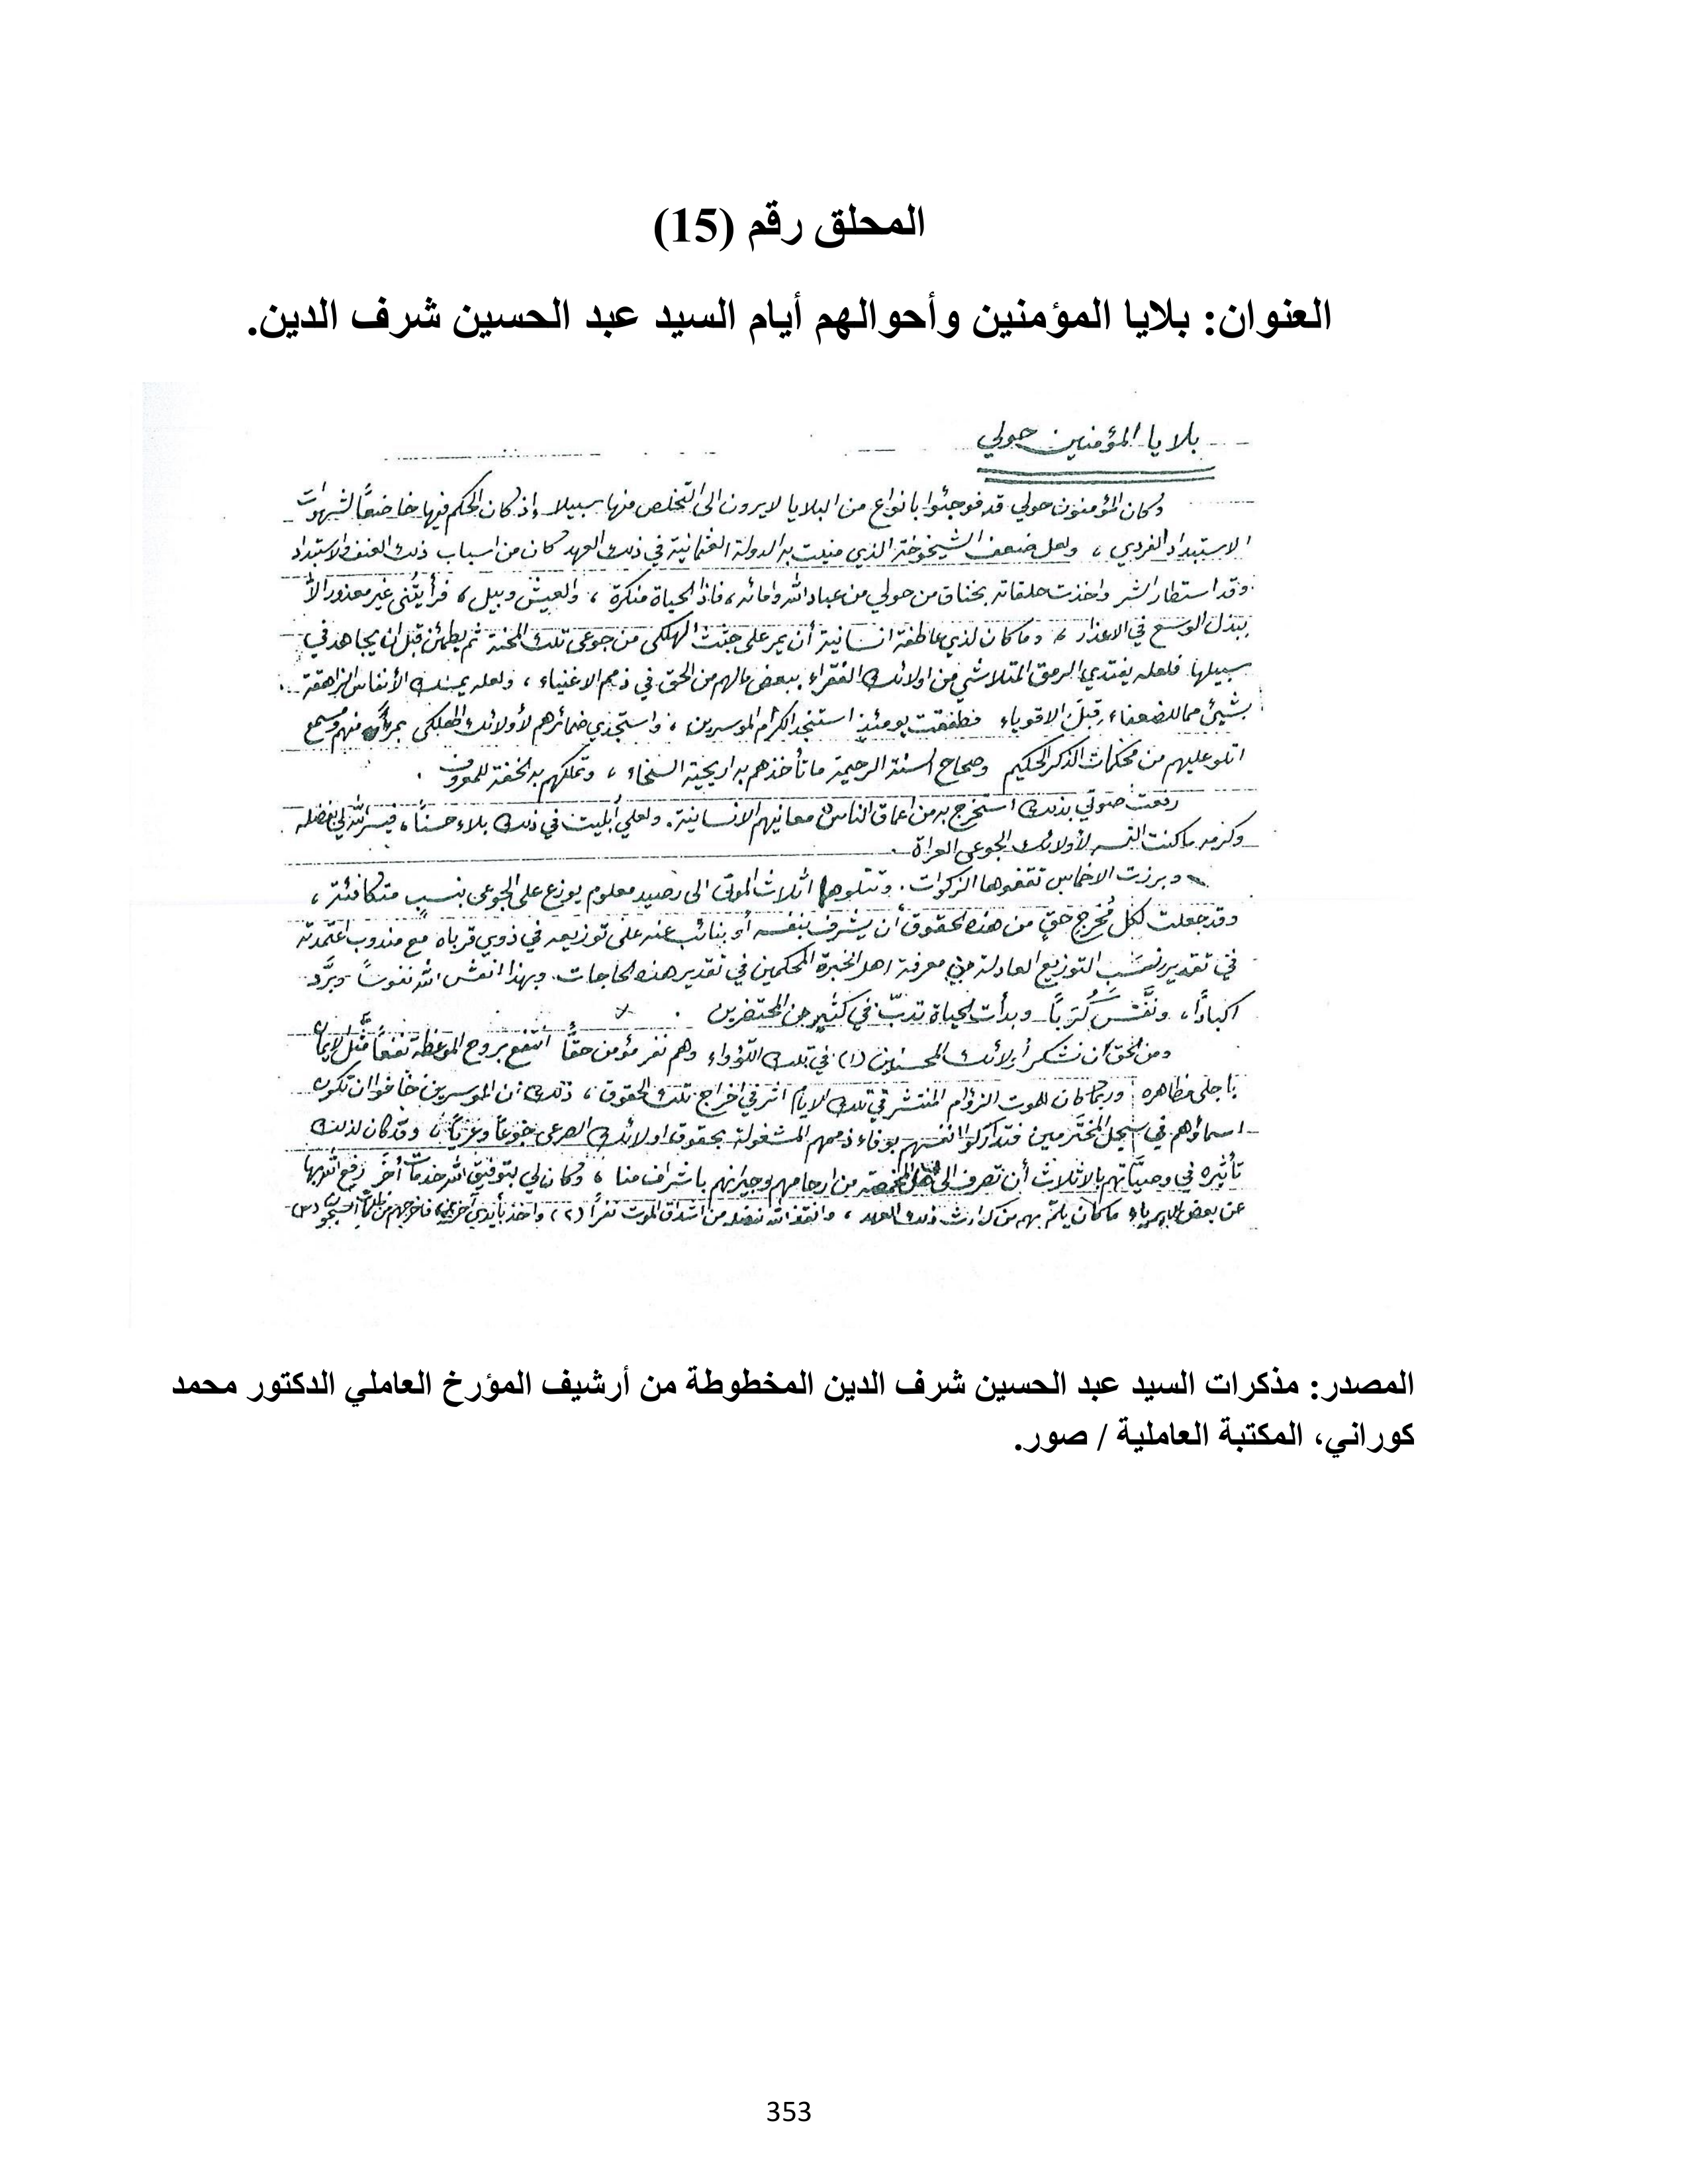 المحلق رقم (15)
العنوان: بلايا المؤمنين وأحوالهم أيام السيد عبد الحسين شرف الدين.
بلايا المؤمنين حولي
وكان المؤمنون حولي قد فوجئوا بانواع من البلايا لا يرون الى التخلص منها سبيلا، إذ كان الحكم فيها خاضعاً لشهوات
الاستبداد الفردي، ولعل ضعف الشيخوخة الذي منيت به الدولة العثمانية في ذلك العهد كان من اسباب ذلك العنف والاستبداد
وقد استطار الشر واخذت حلقاته بخناق من حولي من عباد الله وامائه، فاذا الحياة منكرة، والعيش وبيل، فرأيتُني غير معذور الاّ
ببذل الوسع في الاعذار، وما كان لذي عاطفة انسانية أن يمر على جثث الهلكى من جوعى تلك المحنة ثم يطمئن قبل ان يجاهد في
سبيلها فلعله يفتدي الرمق المتلاشي من اولائك الفقراء ببعض مالهم من الحق في ذمم الاغنياء، ولعله يمسك الأنفاس الزاهقة
بشيئ مما للضعفاء قِبَل الاقوياء فطفقت يومئذٍ استنجد الكرام الموسرين، واستجدي ضمائرهم لأولائك الهلكى بمرأى منهم ومسمع
اتلو عليهم من محكمات الذكر الحكيم وصحاح السنة الرحيمة ما تأخذهم به اريحية السخاء، وتملكهم به الخفة للمعروف.
رفعت صوتي بذلك استخرج به من اعماق الناس معانيهم الانسانية. ولعلي أبليت في ذلك بلاء حسناً، فيسر الله لي بفضله
وكرمه ما كنت التمسه لأولائك الجوعى العراة.
وبرزت الاخماس تقفوها الزكوات. وتتلوها اثلاث الموتى الى رصيد معلوم يوزع على الجوعى بنسبٍ متكافئة،
وقد جعلت لكل مُخرج حقٍ من هذه الحقوق أن يشرف بنفسه أو بنائب عنه على توزيعه في ذوي قرباه مع مندوب اعتمدته
في تقدير نسَب التوزيع العادلة من معرفة اهل الخبرة المحكمين في تقدير هذه الحاجات. وبهذا انعش الله نفوساً وبرَّد
اكباداً، ونفَّسَ كُرَباً وبدأت الحياة تدبّ في كثير من المحتضرين.
ومن الحق ان نشكر أولائك المحسنين (١) في تلك اللأواء وهم نفر مؤمن حقاً انتفع بروح الموعظة نفعاً مثَّل الايمان
باجلى مظاهره، وربما كان للموت الزؤام المنتشر في تلك الايام اثر في اخراج تلك الحقوق، ذلك ان الموسرين خافوا ان تكون
اسماؤهم في سجل المخترمين فتداركوا انفسهم بوفاء ذممهم المشغولة بحقوق اولائك الصرعى جوعاً وعرياً، وقد كان لذلك
تأثيره في وصيّاتهم بالاثلاث أن تصرف الى اهل المخمصة من ارحامهم وجيرانهم باشراف منا، وكان لي بتوفيق الله خدمات أخر رفع الله بها
عن بعض الابرياء ما كان يلمّ بهم من كوارث ذلك العهد، وانقذ الله بفضله من اشداق الموت نفراً (٢)، واخذ بأيدي آخرين، فاخرجهم من ظلمات السجون (٣)
المصدر: مذكرات السيد عبد الحسين شرف الدين المخطوطة من أرشيف المؤرخ العاملي الدكتور محمد
كوراني، المكتبة العاملية / صور.
353